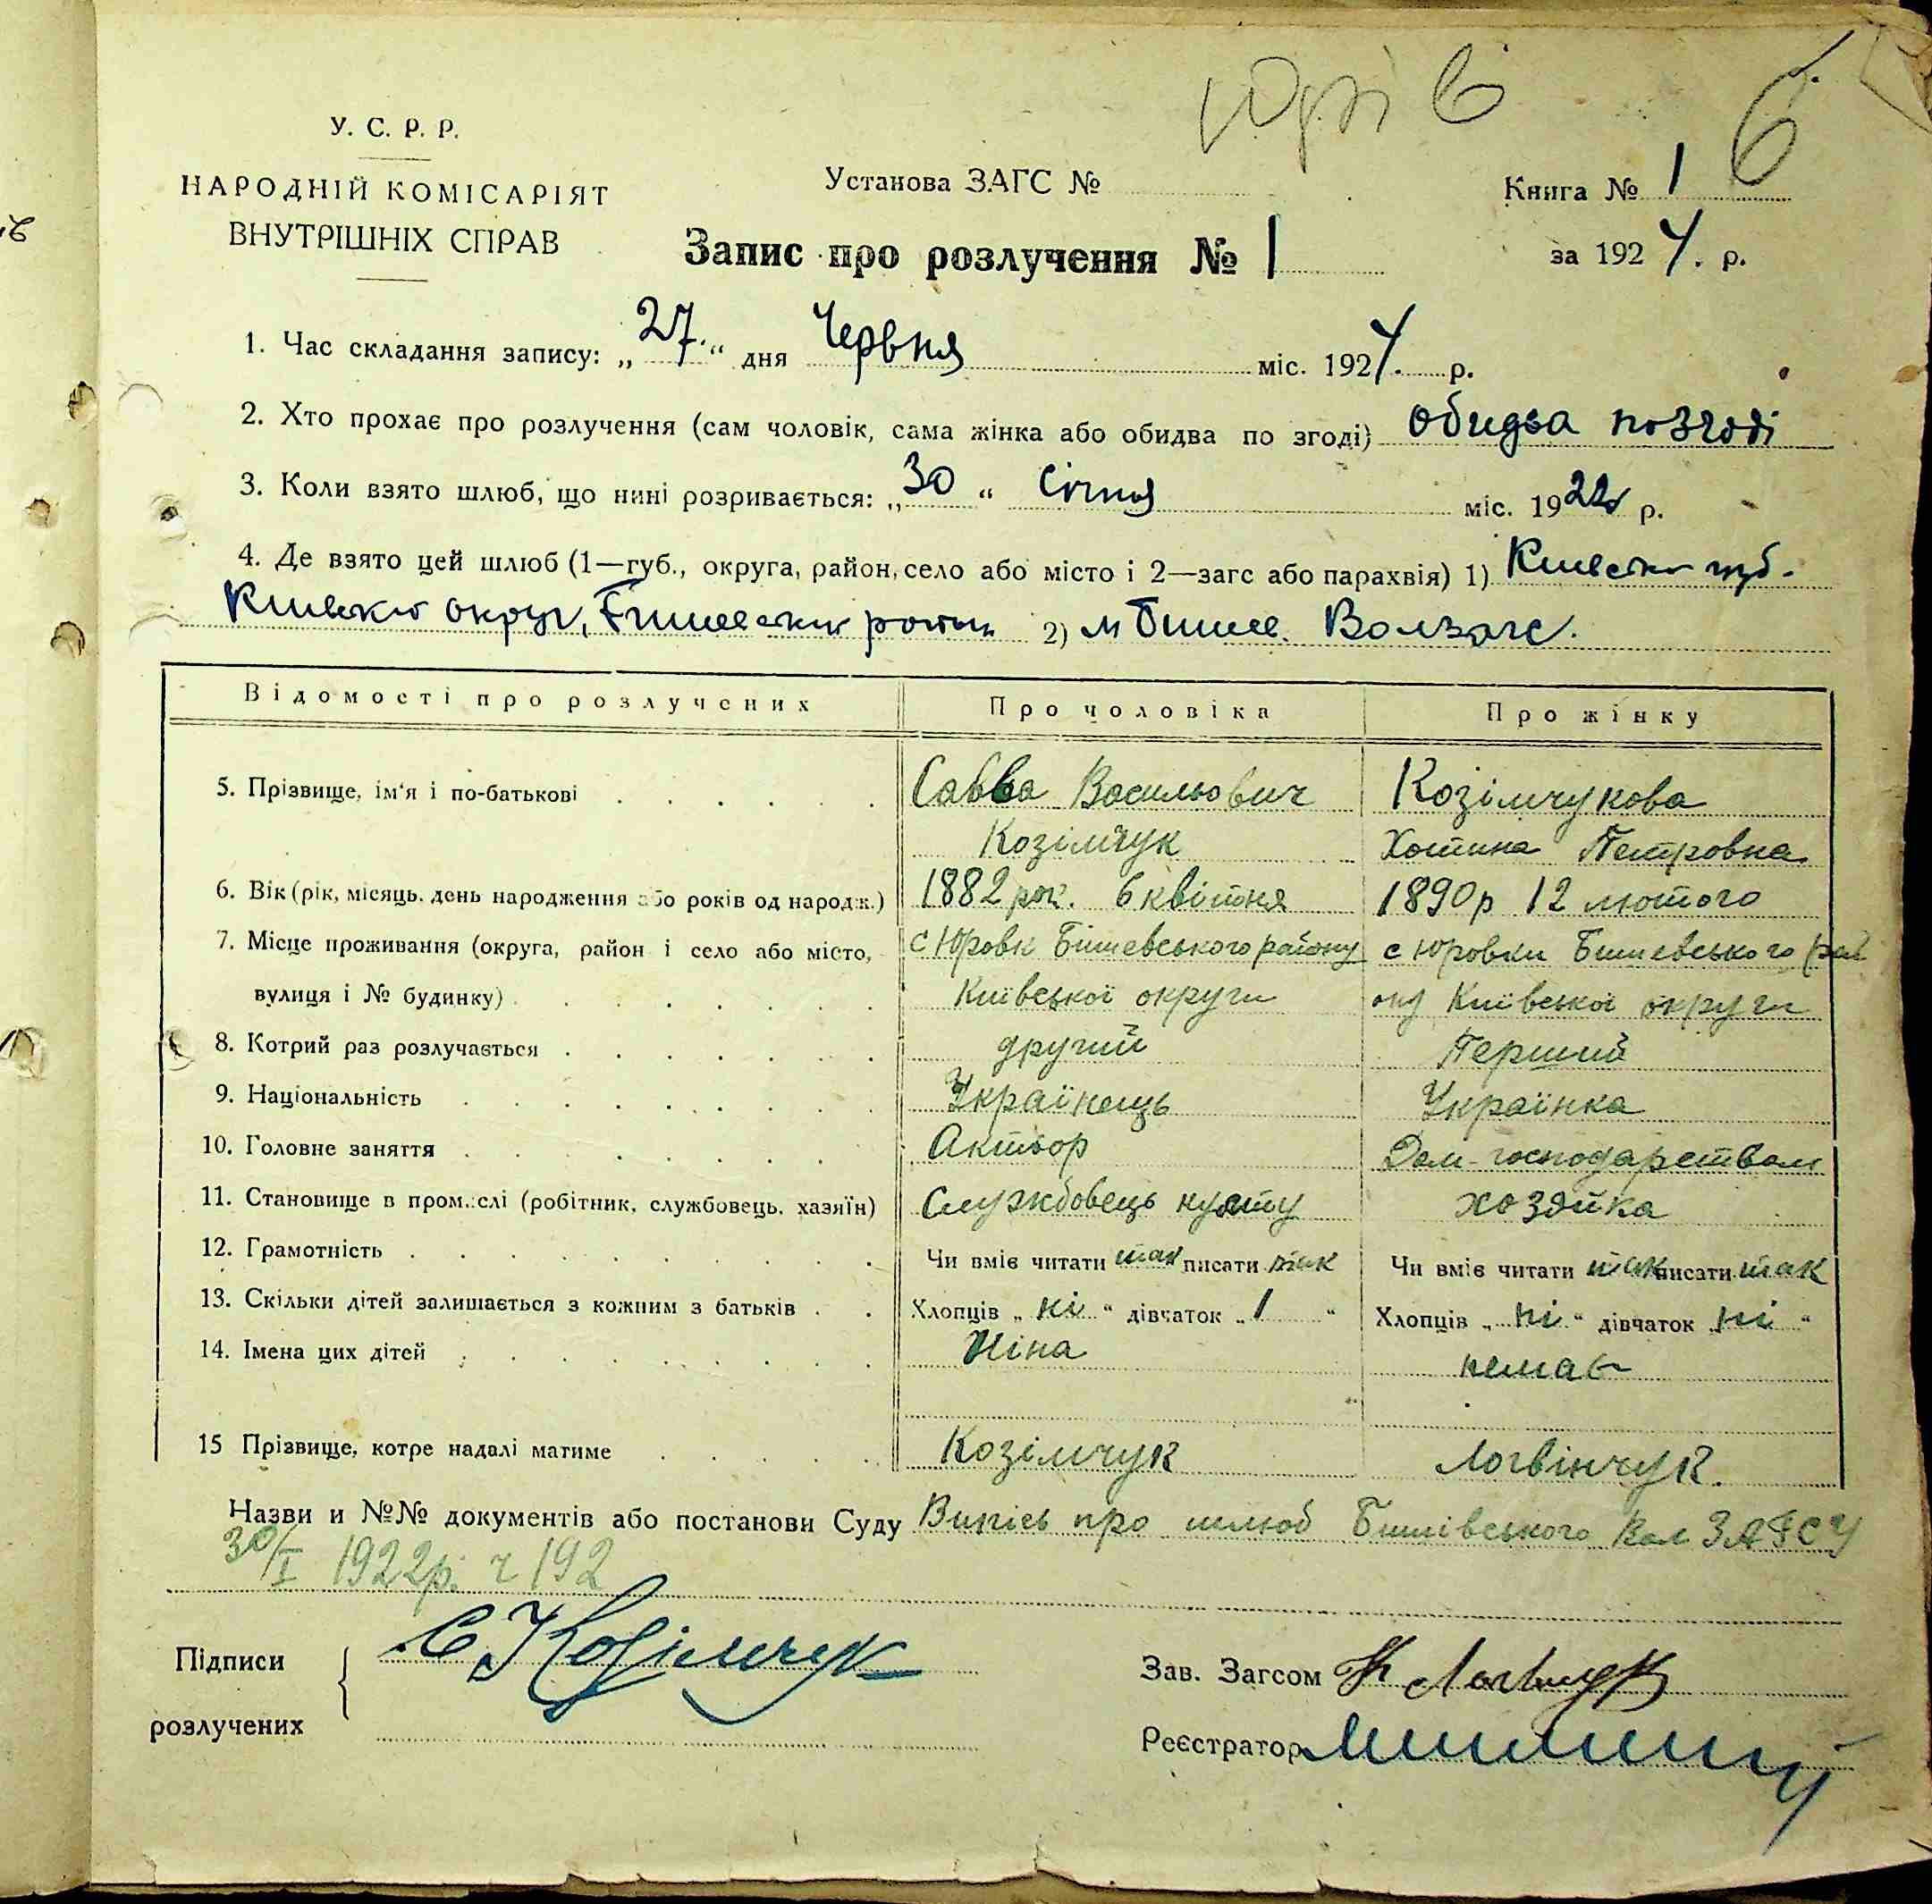 Юрів
6
У. С. Р. Р.
НАРОДНІЙ КОМІСАРІЯТ
ВНУТРІШНІХ СПРАВ
Установа ЗАГС №
Книга № 1
Запис про розлучення № 1
за 1924. р.
1. Час складання запису: „27.“ дня Червня міс. 1924. р.
2. Хто прохає про розлучення (сам чоловік, сама жінка або обидва по згоді) обидва позгоді
3. Коли взято шлюб, що нині розривається: „30“ Січня міс. 1922 р.
4. Де взято цей шлюб (1—губ., округа, район, село або місто і 2—загс або парахвія) 1) Київська губ.
округи, 2) м Бишев. Волзагс.
Відомості про розлучених Про чоловіка Про жінку
5. Прізвище, ім'я і по-батькові Савва Васильович Козімчукова
Козімчук Хотина Петровна
6. Вік (рік, місяць, день народження або років од народж.) 1882 рок. 6 квітня 1890р 12 лютого
7. Місце проживання (округа, район і село або місто, с Юровк Бишевського району с Юровки Бишевського рай
вулиця і № будинку) Київської округи ону Київської округи
8. Котрий раз розлучається другий Перший
9. Національність Українець Українка
10. Головне заняття Актьор Дом-господарством
11. Становище в промислі (робітник, службовець, хазяїн) Службовець хозяйка
12. Грамотність Чи вміє читати так писати так Чи вміє читати так писати так
13. Скільки дітей залишається з кожним з батьків Хлопців „ні“ дівчаток „1“ Хлопців „ні“ дівчаток „ні“
14. Імена цих дітей Ніна немає
15 Прізвище, котре надалі матиме Козімчук Логвінчук.
Назви и №№ документів або постанови Суду Випісь про шлюб Бишівського Вол ЗАГСУ
30/I 1922р. ч 192
Підписи С. Козімчук
розлучених
Зав. Загсом
Реєстратор